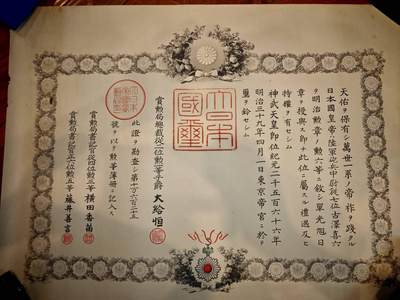 天佑ヲ保有シ萬世一系ノ帝祚ヲ踐タル
日本國皇帝ハ陸軍砲兵中尉從七位古澤喜六
ヲ明治勲章ノ勲六等ニ敍シ單光旭日
章ヲ授與ス即チ此位ニ屬スル禮遇及ヒ
特權ヲ有セシム
神武天皇即位紀元二千五百六十六年
明治三十九年四月一日東京帝宮ニ於テ
璽ヲ鈐セシム
大日本國璽
賞勲局總裁從二位勲一等子爵 大給恒
此證ヲ勘査シ第十万六百二十五
號ヲ以テ勲等簿冊ニ記入ス
賞勲局書記官從四位勲三等 横田香苗
賞勲局書記官正六位勲五等 藤井善言